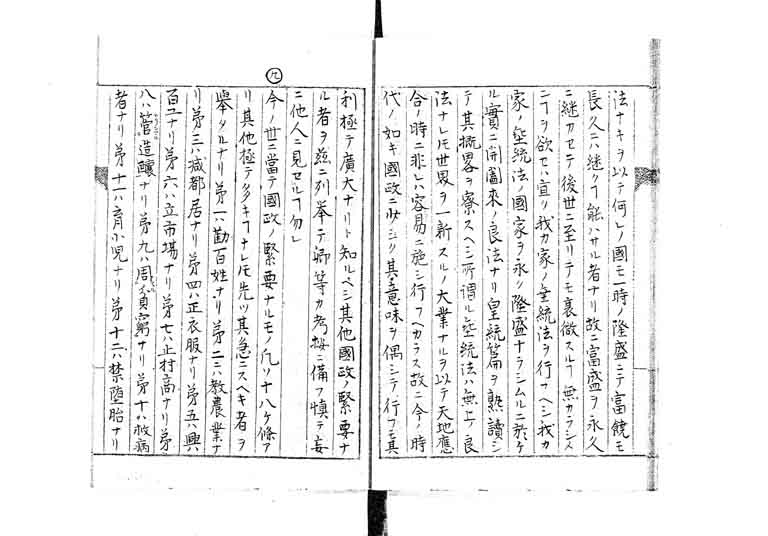 法ナキヲ以テ何レノ國モ一時ノ隆盛ニテ富饒モ
長久ニハ継クヿ能ハサル者ナリ故ニ富盛ヲ永久
ニ継カセテ後世ニ至リテモ衰微スルヿ無カラシメ
ンヿヲ欲セハ宜ク我カ家ノ垂統法ヲ行フヘシ我カ
家ノ垂統法ノ國家ヲ永ク隆盛ナラシムルニ於ケ
ル實ニ開闢來ノ良法ナリ皇統篇ヲ熟讀シ
テ其概畧ヲ察スヘシ所謂ル垂統法ハ無上ノ良
法ナレ𪜈世界ヲ一新スルノ大業ナルヲ以テ天地應
合ノ時ニ非レハ容易ニ施シ行フヘカラス故ニ今ノ時
代ノ如キ國政ニ少シク其意味ヲ偶シテ行フモ其
利極テ廣大ナリト知ルベシ其他國政ノ緊要ナ
ル者ヲ茲ニ列挙テ卿等カ考按ニ備フ慎テ妄
ニ他人ニ見セルヿ勿レ
今ノ世ニ當テ國政ノ緊要ナルモノ凡ソ十八ケ條ア
リ其他極テ多キヿナレ𪜈先ツ其急ニスヘキ者ヲ
舉クルナリ第一ハ勸百姓ナリ第二ハ教農業ナ
リ第三ハ減都居ナリ第四ハ正衣服ナリ第五ハ興
百工ナリ第六ハ立市場ナリ第七ハ正村高ナリ第
八ハ營造釀ナリ第九ハ周貧窮ナリ第十ハ救病
者ナリ第十一ハ育小児ナリ第十二ハ禁堕胎ナリ
九